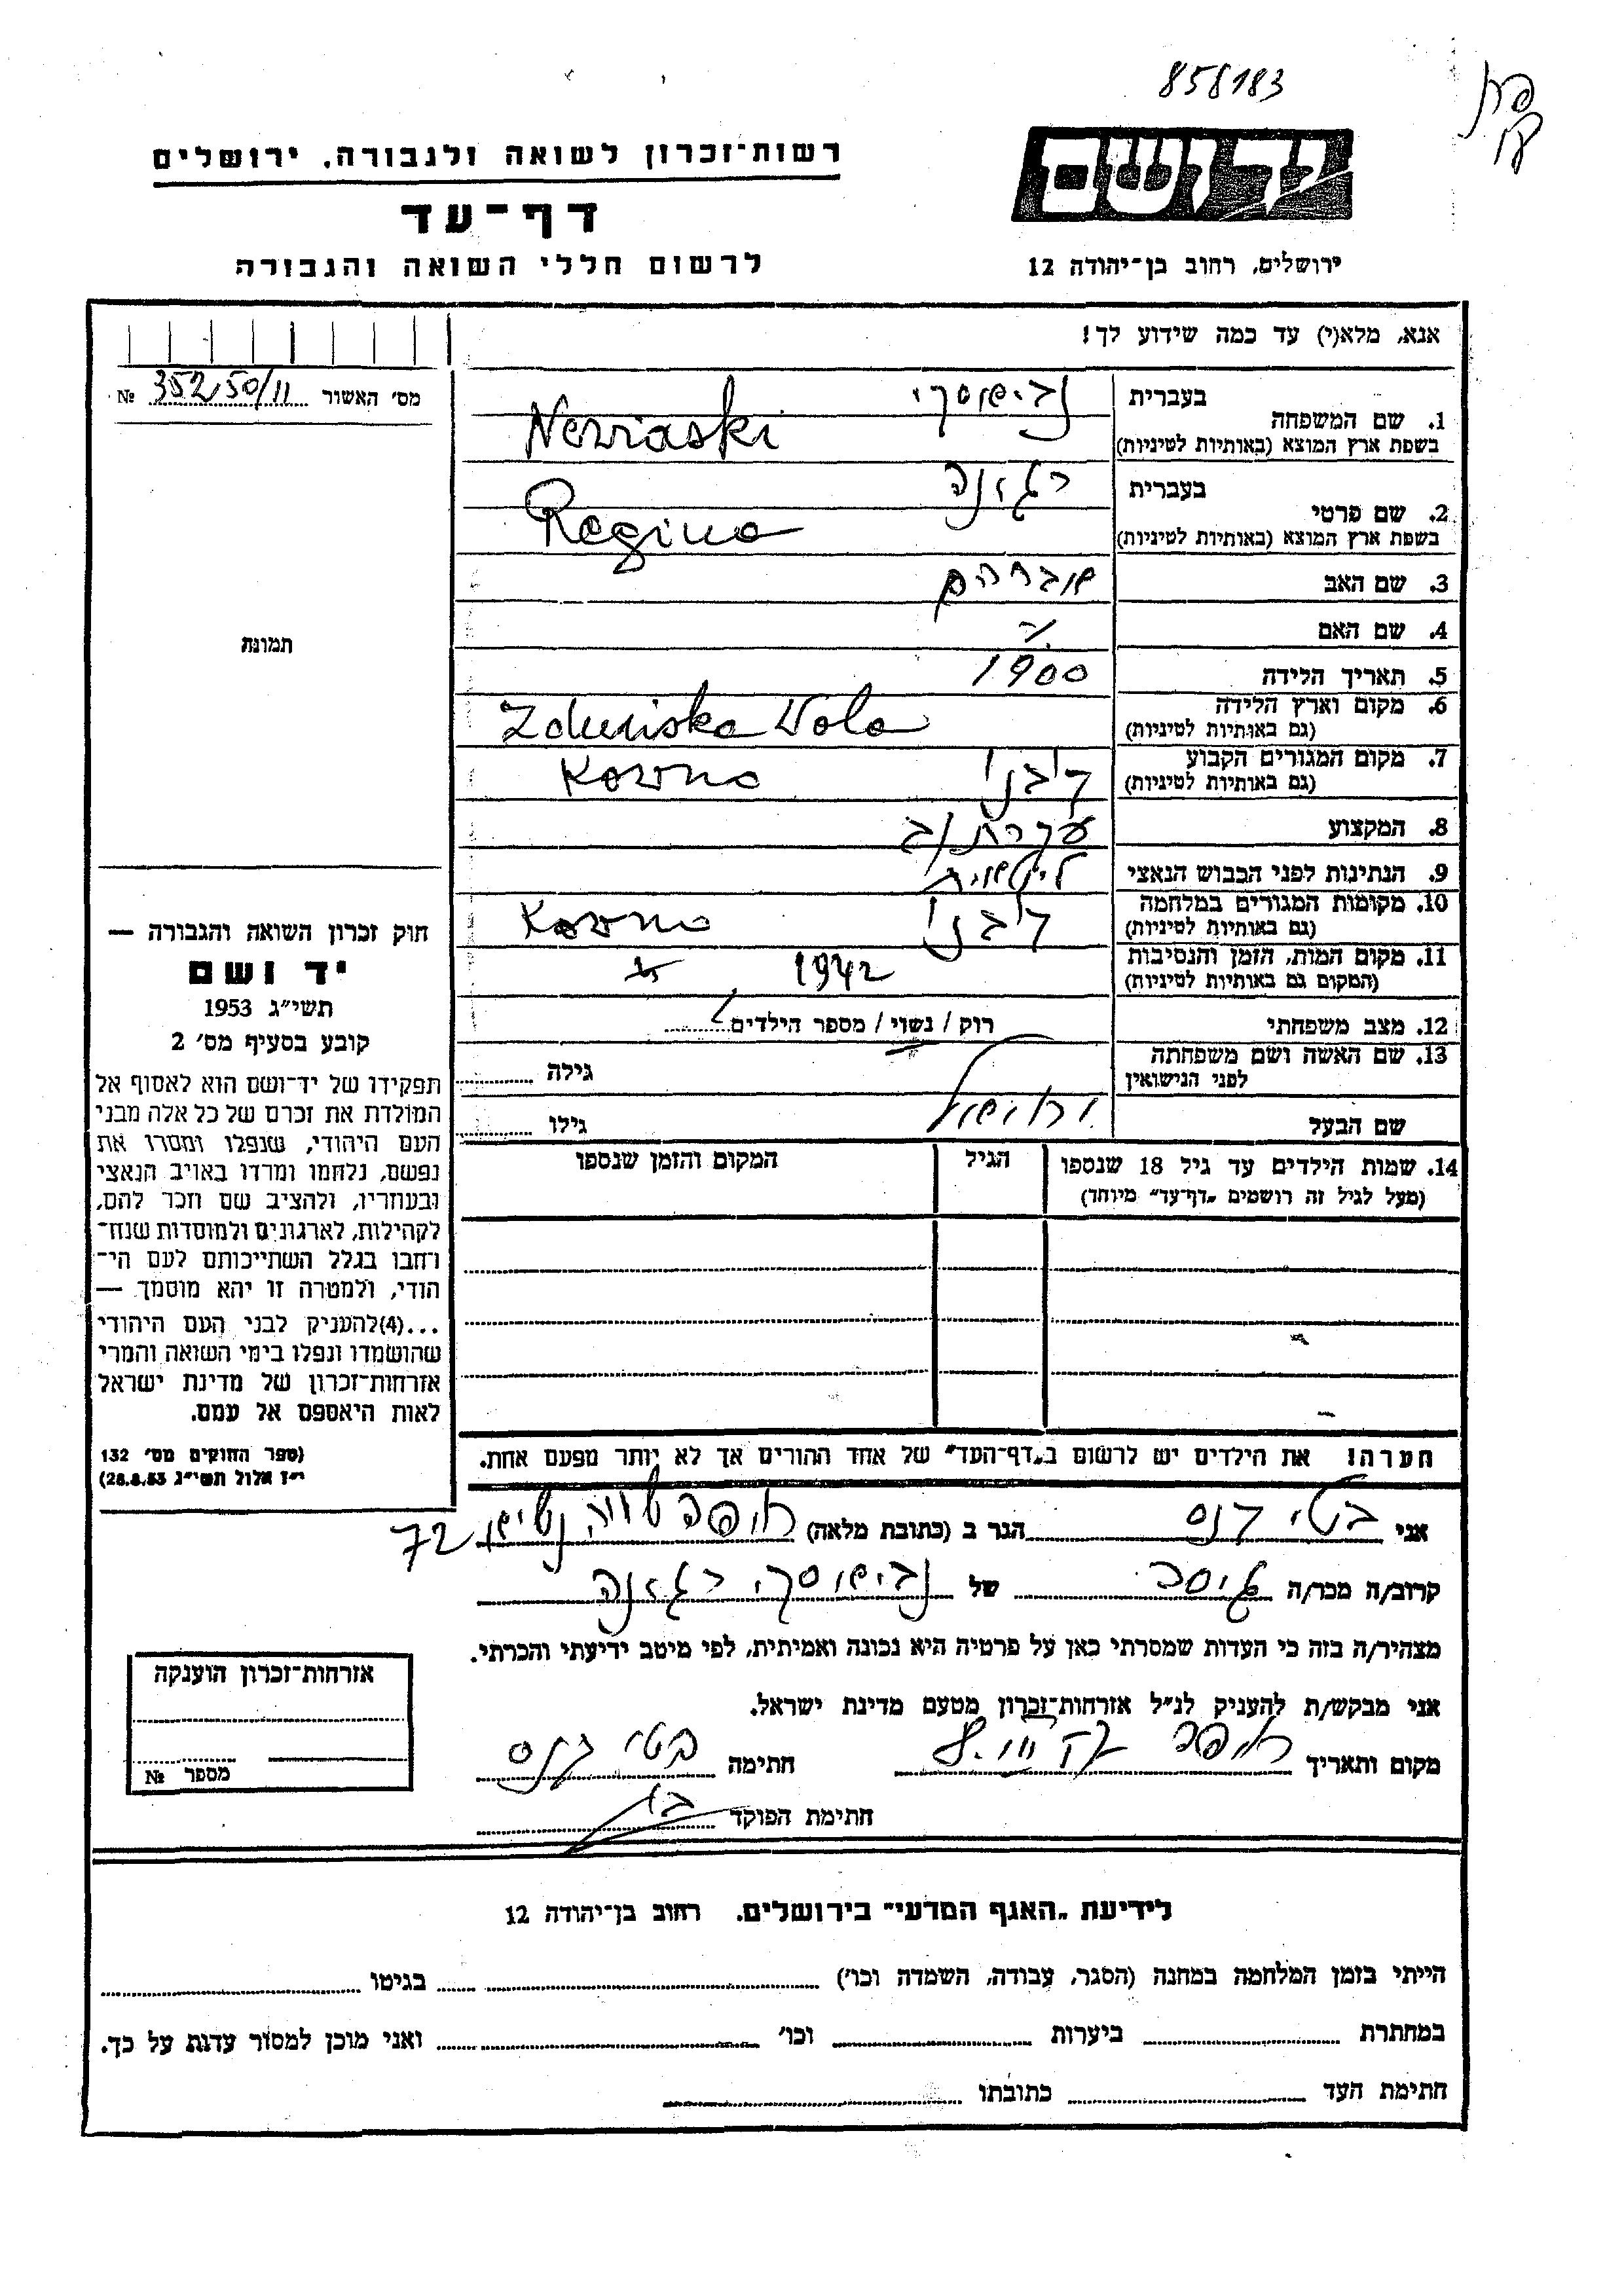 858183
יד ושם
רשות־זכרון לשואה ולגבורה, ירושלים
דף־עד
לרשום חללי השואה והגבורה
ירושלים, רחוב בן־יהודה 12
אנא, מלא(י) עד כמה שידוע לך!
מס׳ האשור 352,50/11 №
1. שם המשפחה
בעברית
בשפת ארץ המוצא (באותיות לטיניות) Nevriaski
2. שם פרטי
בעברית רגינה
בשפת ארץ המוצא (באותיות לטיניות) Regina
3. שם האב אברהם
4. שם האם
5. תאריך הלידה 1900
6. מקום וארץ הלידה
(גם באותיות לטיניות) Zduńska Wola
7. מקום המגורים הקבוע
(גם באותיות לטיניות) קובנו Kovno
8. המקצוע עקרת בית
9. הנתינות לפני הכבוש הנאצי ליטאית
10. מקומות המגורים במלחמה
(גם באותיות לטיניות) קובנו Kovno
11. מקום המות, הזמן והנסיבות
(המקום גם באותיות לטיניות) 1942
12. מצב משפחתי רוק / נשוי / מספר הילדים
13. שם האשה ושם משפחתה
לפני הנישואין
גילה
שם הבעל
גילו
14. שמות הילדים עד גיל 18 שנספו
(מעל לגיל זה רושמים „דף־עד״ מיוחד)
הגיל
המקום והזמן שנספו
תמונה
חוק זכרון השואה והגבורה —
יד ושם
תשי״ג 1953
קובע בסעיף מס׳ 2
תפקידו של יד־ושם הוא לאסוף אל
המולדת את זכרם של כל אלה מבני
העם היהודי, שנפלו ומסרו את
נפשם, נלחמו ומרדו באויב הנאצי
ובעוזריו, ולהציב שם וזכר להם,
לקהילות, לארגונים ולמוסדות שנח־
רחבו בגלל השתייכותם לעם הי־
הודי, ולמטרה זו יהא מוסמך —
...(4)להעניק לבני העם היהודי
שהושמדו ונפלו בימי השואה והמרי
אזרחות־זכרון של מדינת ישראל
לאות היאספם אל עמם.
(ספר החוקים מס׳ 132
י״ז אלול תשי״ג 28.8.53)
הערה! את הילדים יש לרשום ב„דף־העד״ של אחד ההורים אך לא יותר מפעם אחת.
אני בטי הגר ב (כתובת מלאה) חיפה 72
קרוב/ה מכר/ה של רגינה
מצהיר/ה בזה כי העדות שמסרתי כאן על פרטיה היא נכונה ואמיתית, לפי מיטב ידיעתי והכרתי.
אני מבקש/ת להעניק לנ״ל אזרחות־זכרון מטעם מדינת ישראל.
מקום ותאריך חיפה חתימה בטי
חתימת הפוקד
אזרחות־זכרון הוענקה
מספר №
לידיעת „האגף המדעי״ בירושלים, רחוב בן־יהודה 12
הייתי בזמן המלחמה במחנה (הסגר, עבודה, השמדה וכו׳) בגיטו
במחתרת ביערות וכו׳ ואני מוכן למסור עדות על כך.
חתימת העד כתובתו